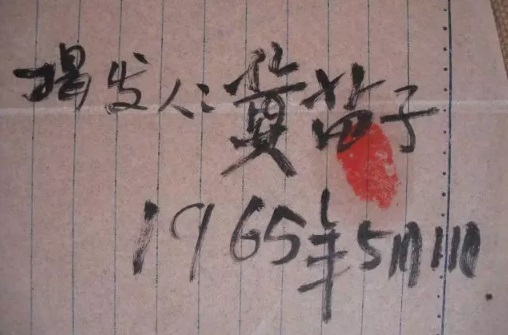 揭发人：黄苗子
1965年5月